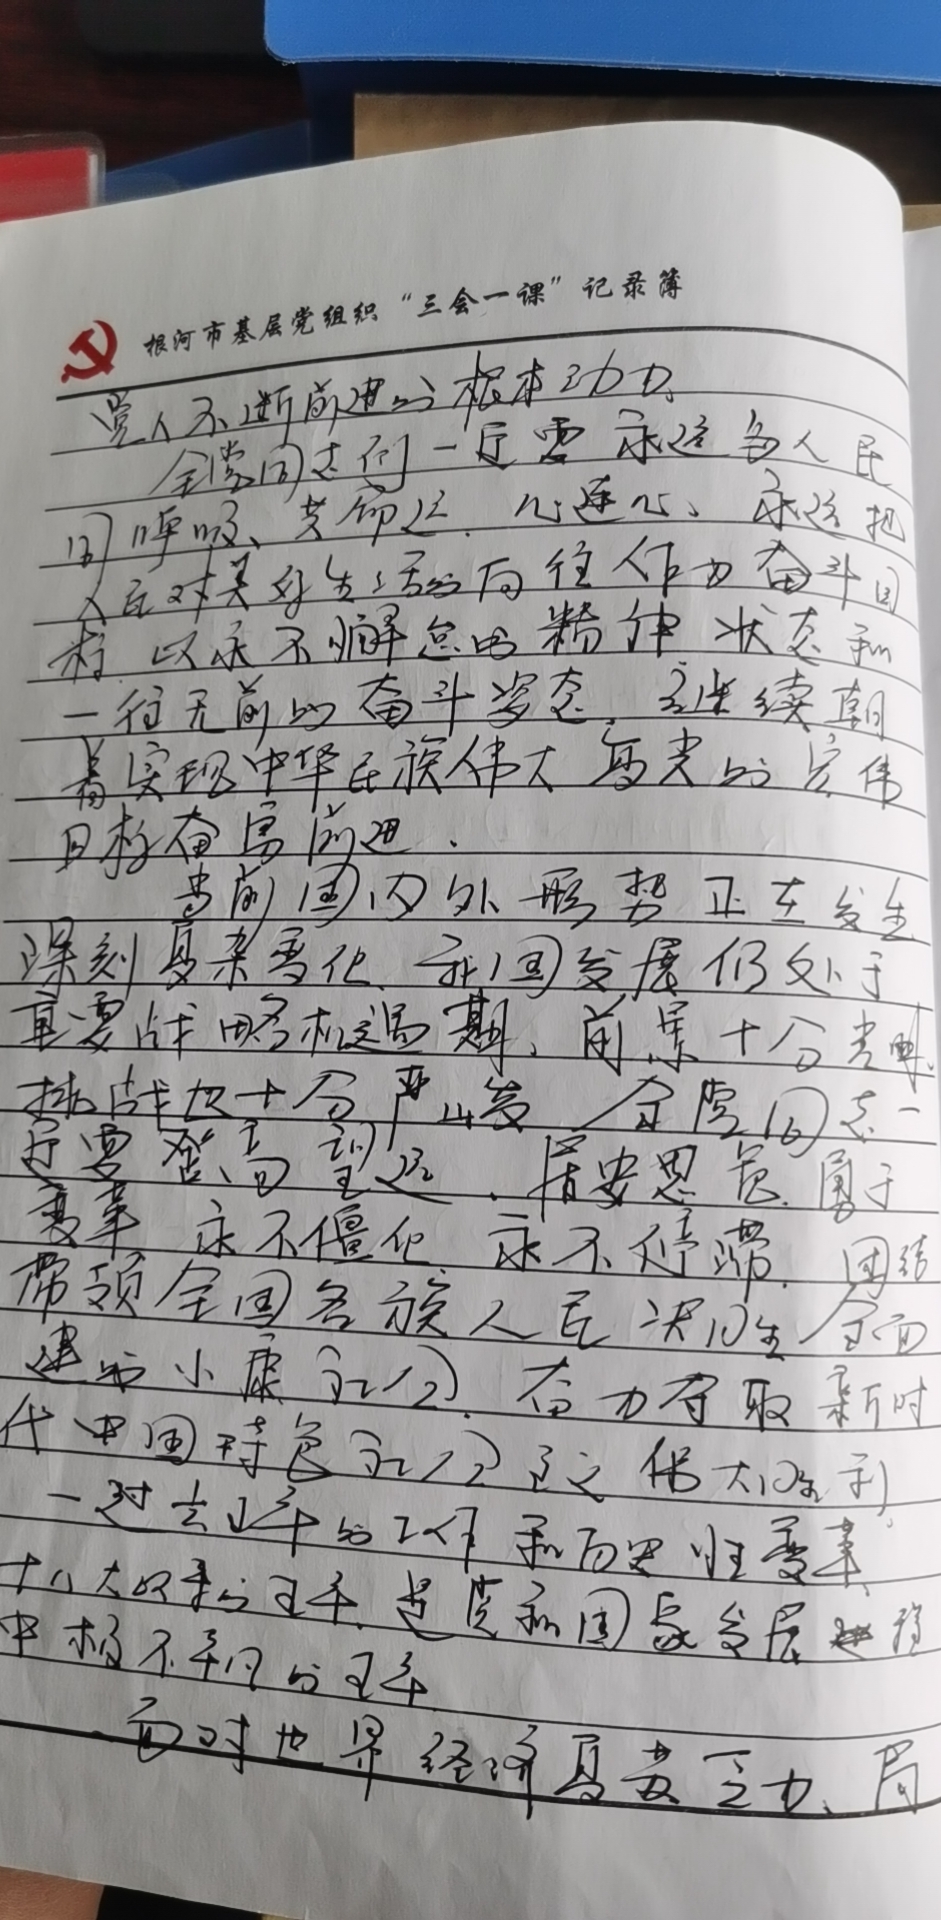 根河市基层党组织“三会一课”记录簿
党人不断前进的根本动力。
全党同志们一定要永远与人民
同呼吸、共命运、心连心、永远把
人民对美好生活的向往作为奋斗目
标，以永不懈怠的精神状态和
一往无前的奋斗姿态，继续朝
着实现中华民族伟大复兴的宏伟
目标奋勇前进.
当前国内外形势正在发生
深刻复杂变化，我国发展仍处于
重要战略机遇期、前景十分光明、
挑战也十分严峻 全党同志一
定要登高望远、居安思危、勇于
变革 永不僵化 永不停滞、团结
带领全国各族人民决胜全面
建成小康社会，奋力夺取新时
代中国特色社会主义伟大胜利，
一过去五年的工作和历史性变革，
十八大以来的五年是党和国家发展
中极不平凡的五年
面对世界经济复苏乏力、局